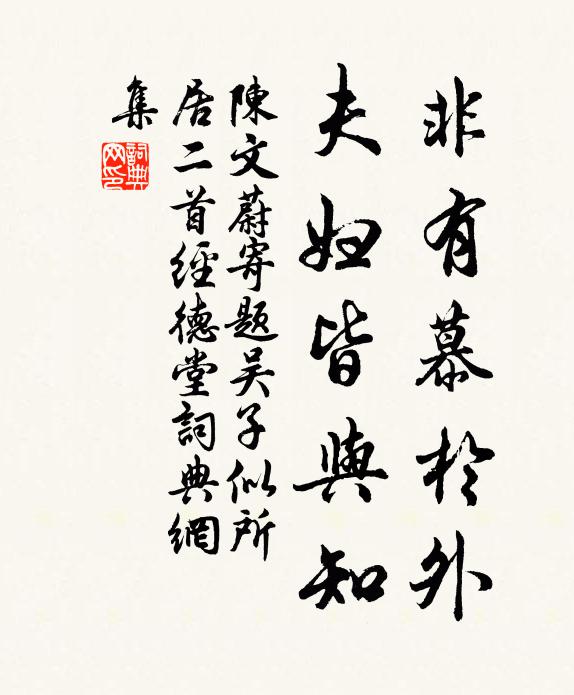 非有慕於外
夫妇皆與知
陳文蔚寄題吴子似所
居二首經德堂詞典網
集
詞典
网印